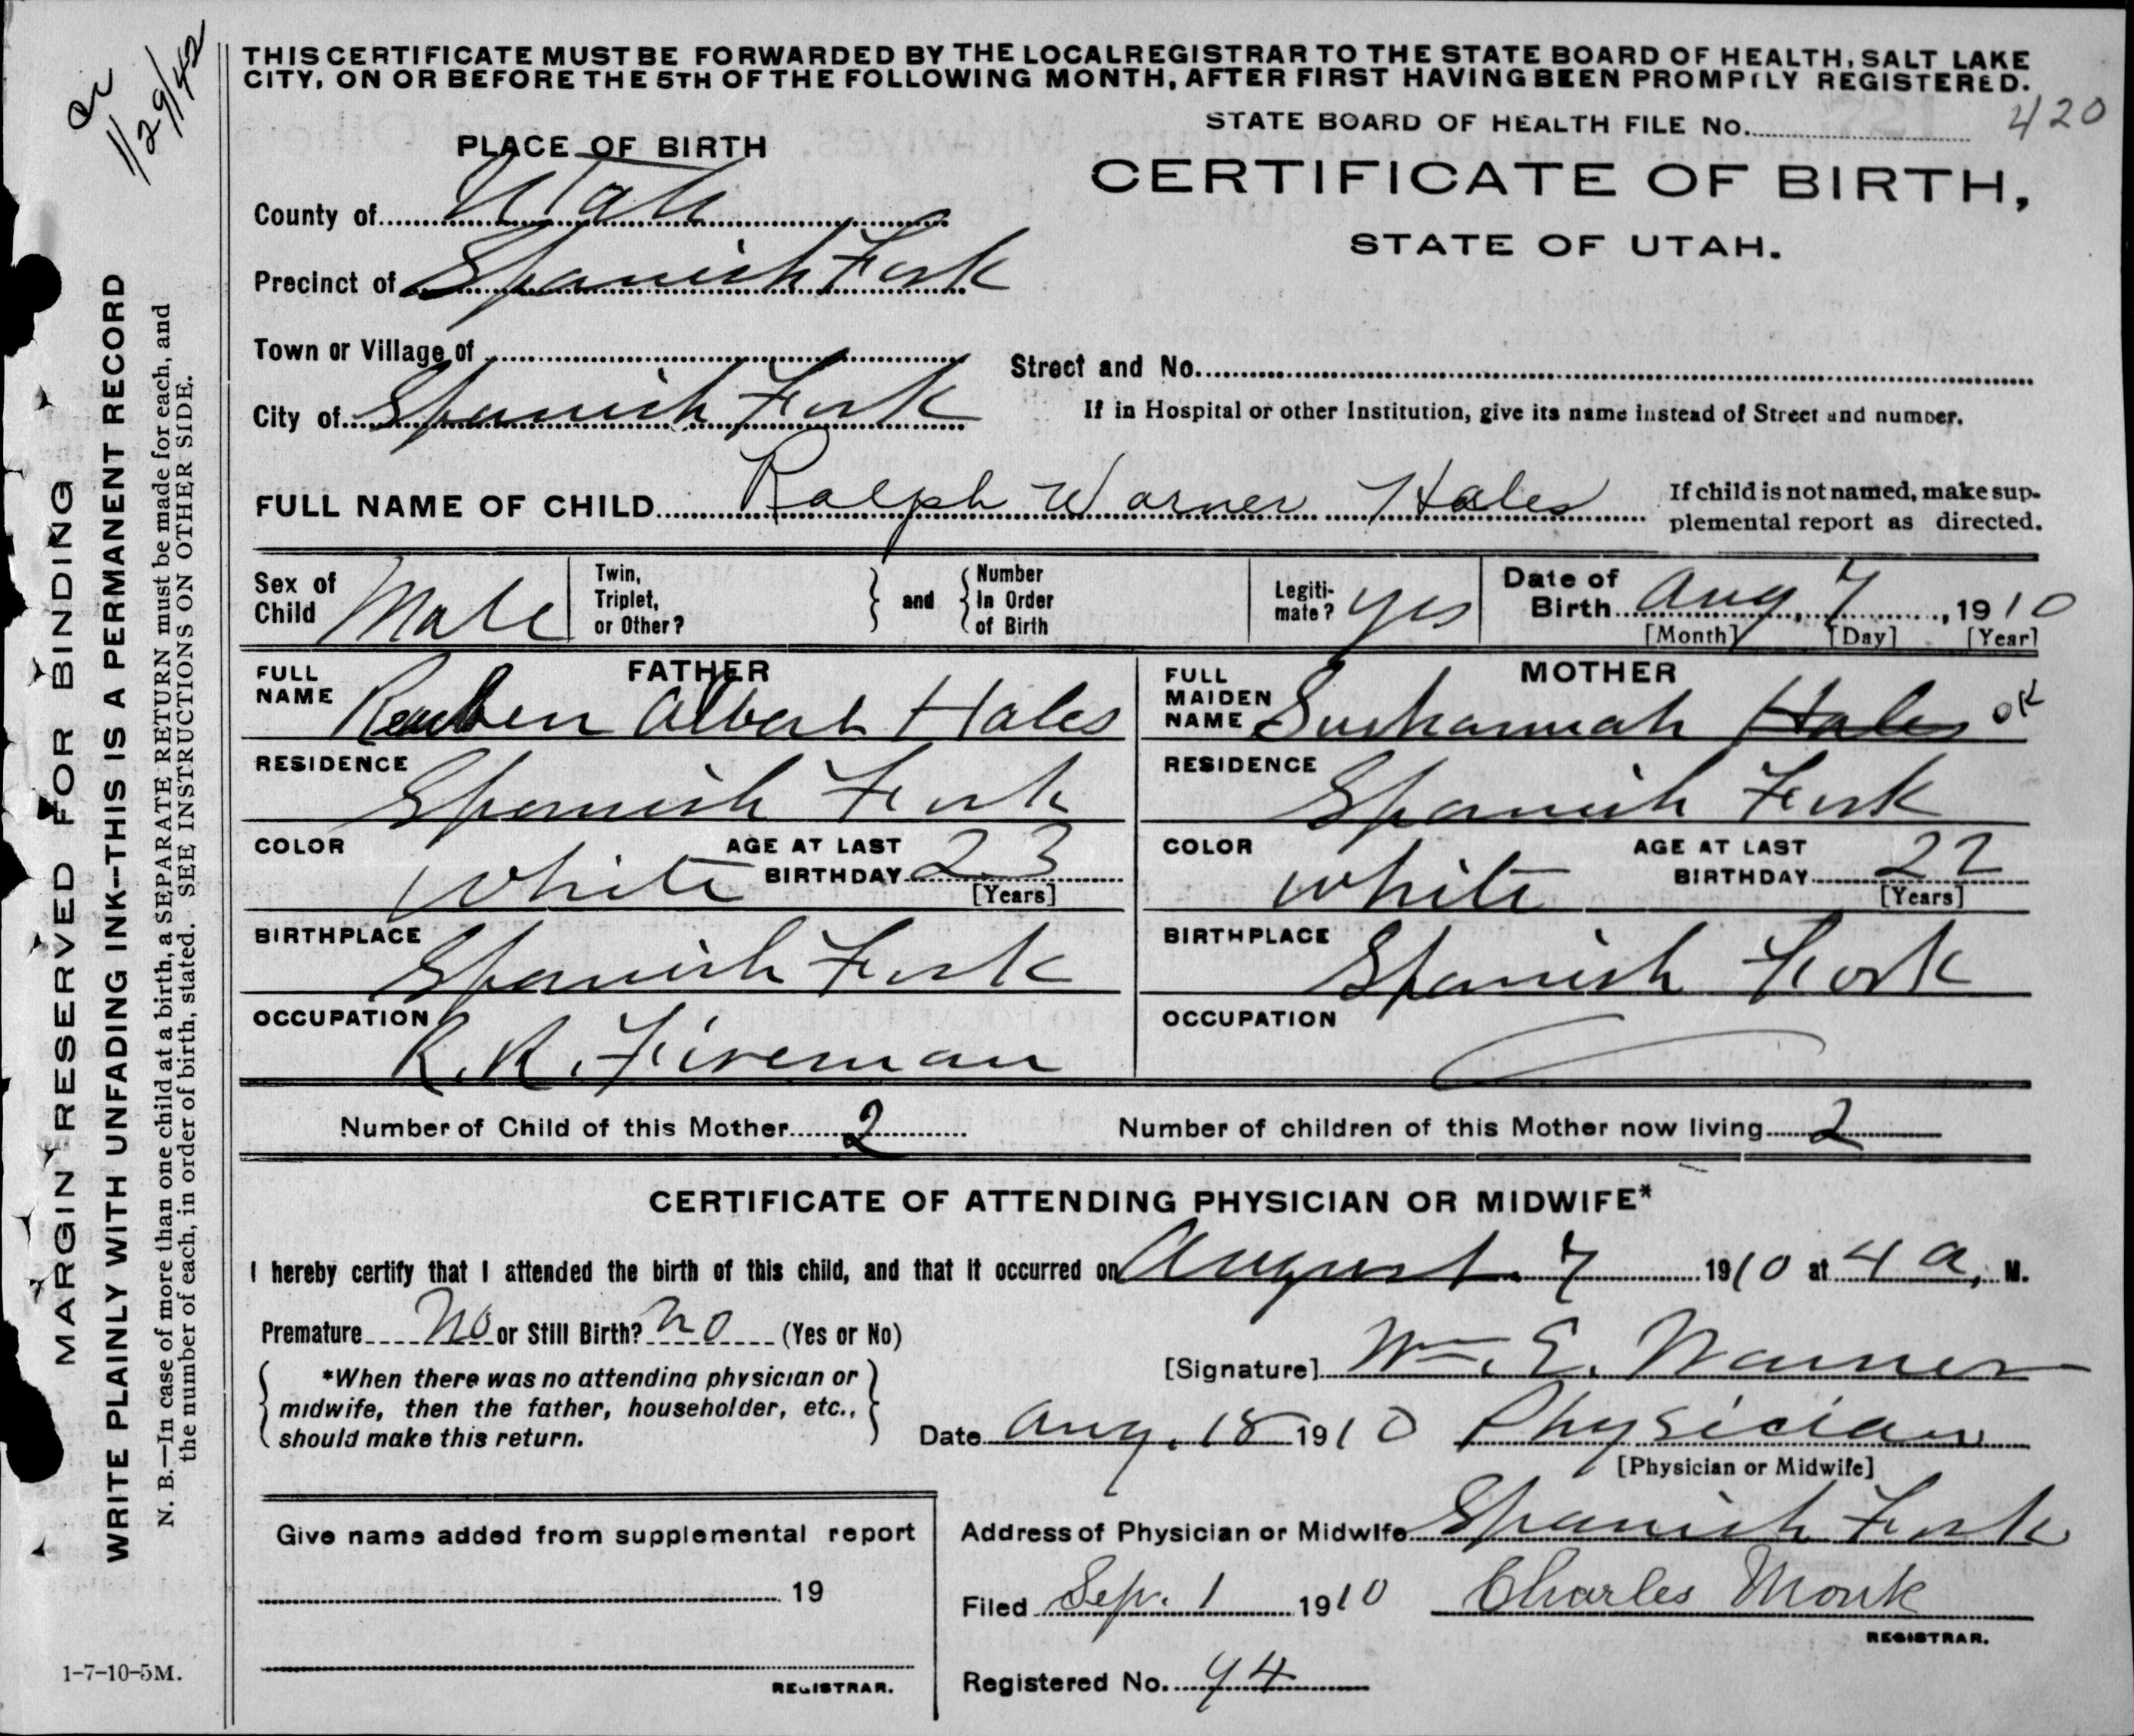 THIS CERTIFICATE MUST BE FORWARDED BY THE LOCAL REGISTRAR TO THE STATE BOARD OF HEALTH, SALT LAKE
CITY, ON OR BEFORE THE 5TH OF THE FOLLOWING MONTH, AFTER FIRST HAVING BEEN PROMPTLY REGISTERED.
11/29/42
STATE BOARD OF HEALTH FILE No. 420
PLACE OF BIRTH
CERTIFICATE OF BIRTH,
STATE OF UTAH.
County of Utah
Precinct of Spanish Fork
Town or Village of
Street and No.
City of Spanish Fork
If in Hospital or other Institution, give its name instead of Street and number.
FULL NAME OF CHILD Ralph Warner Hales
If child is not named, make sup-
plemental report as directed.
Sex of Child Male
Twin, Triplet, or Other?
and
Number In Order of Birth
Legiti-mate? yes
Date of Birth Aug, 7, 1910
[Month] [Day] [Year]
FATHER
FULL NAME Reuben Albert Hales
MOTHER
FULL MAIDEN NAME Sushannah Hales OK
RESIDENCE Spanish Fork
RESIDENCE Spanish Fork
COLOR White AGE AT LAST BIRTHDAY 23 [Years]
COLOR White AGE AT LAST BIRTHDAY 22 [Years]
BIRTHPLACE Spanish Fork
BIRTHPLACE Spanish Fork
OCCUPATION R. R. Fireman
OCCUPATION
Number of Child of this Mother 2 Number of children of this Mother now living 2
CERTIFICATE OF ATTENDING PHYSICIAN OR MIDWIFE*
I hereby certify that I attended the birth of this child, and that it occurred on August 7 1910 at 4 a, M.
Premature no or Still Birth? no (Yes or No)
[Signature] Wm. E. Warner
*When there was no attending physician or
midwife, then the father, householder, etc.,
should make this return.
Date Aug. 18 1910 Physician
[Physician or Midwife]
Give name added from supplemental report
19
REGISTRAR.
Address of Physician or Midwife Spanish Fork
Filed Sep. 1 1910 Charles Monk
REGISTRAR.
Registered No. 94
MARGIN RESERVED FOR BINDING
WRITE PLAINLY WITH UNFADING INK—THIS IS A PERMANENT RECORD
N. B.—In case of more than one child at a birth, a SEPARATE RETURN must be made for each, and
the number of each, in order of birth, stated. SEE INSTRUCTIONS ON OTHER SIDE.
1-7-10-5M.